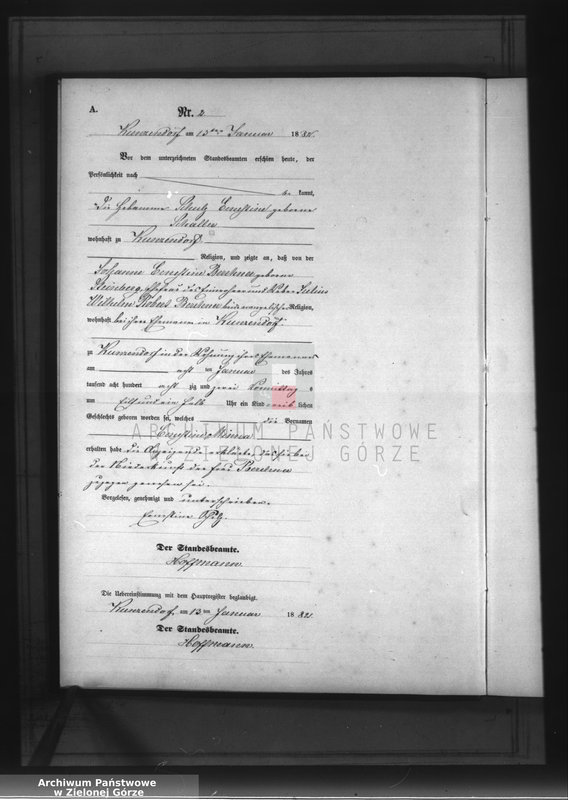 A.
Nr. 2.
Kunzendorf am 13ten Januar 1882.
Vor dem unterzeichneten Standesbeamten erschien heute, der
Persönlichkeit nach
be kannt,
die Hebamme Ernestine geborne
wohnhaft zu Kunzendorf
Religion, und zeigte an, daß von der
Johanne Ernestine geborne
und Weber Julius
Wilhelm beide evangelischer Religion,
wohnhaft bei ihrem Ehemann in Kunzendorf
zu Kunzendorf in der Wohnung ihres Ehemannes
am acht ten Januar des Jahres
tausend acht hundert acht zig und zwei Vormittag s
um Elf und ein halb Uhr ein Kind weib lichen
Geschlechts geboren worden sei, welches die Vornamen
Ernestine Minna
erhalten habe. die Anzeigende erklärte, daß sie bei
der Niederkunft der Frau
zugegen gewesen sei.
Vorgelesen, genehmigt und unterschrieben.
Ernestine
Der Standesbeamte.
Hoffmann.
Die Uebereinstimmung mit dem Hauptregister beglaubigt.
Kunzendorf, am 13 ten Januar 1882.
Der Standesbeamte.
Hoffmann.
ARCHIWUM PAŃSTWOWE
W ZIELONEJ GÓRZE
Archiwum Państwowe
w Zielonej Górze